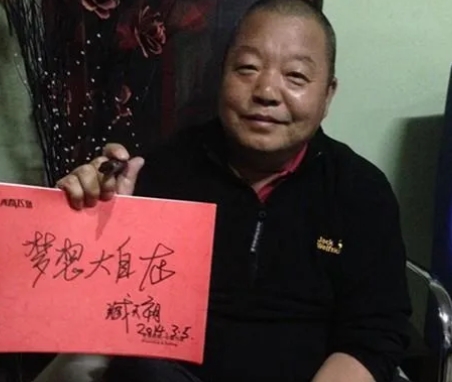 梦想大自在
臧天朔
2014.3.5
Jack
Wolfskin